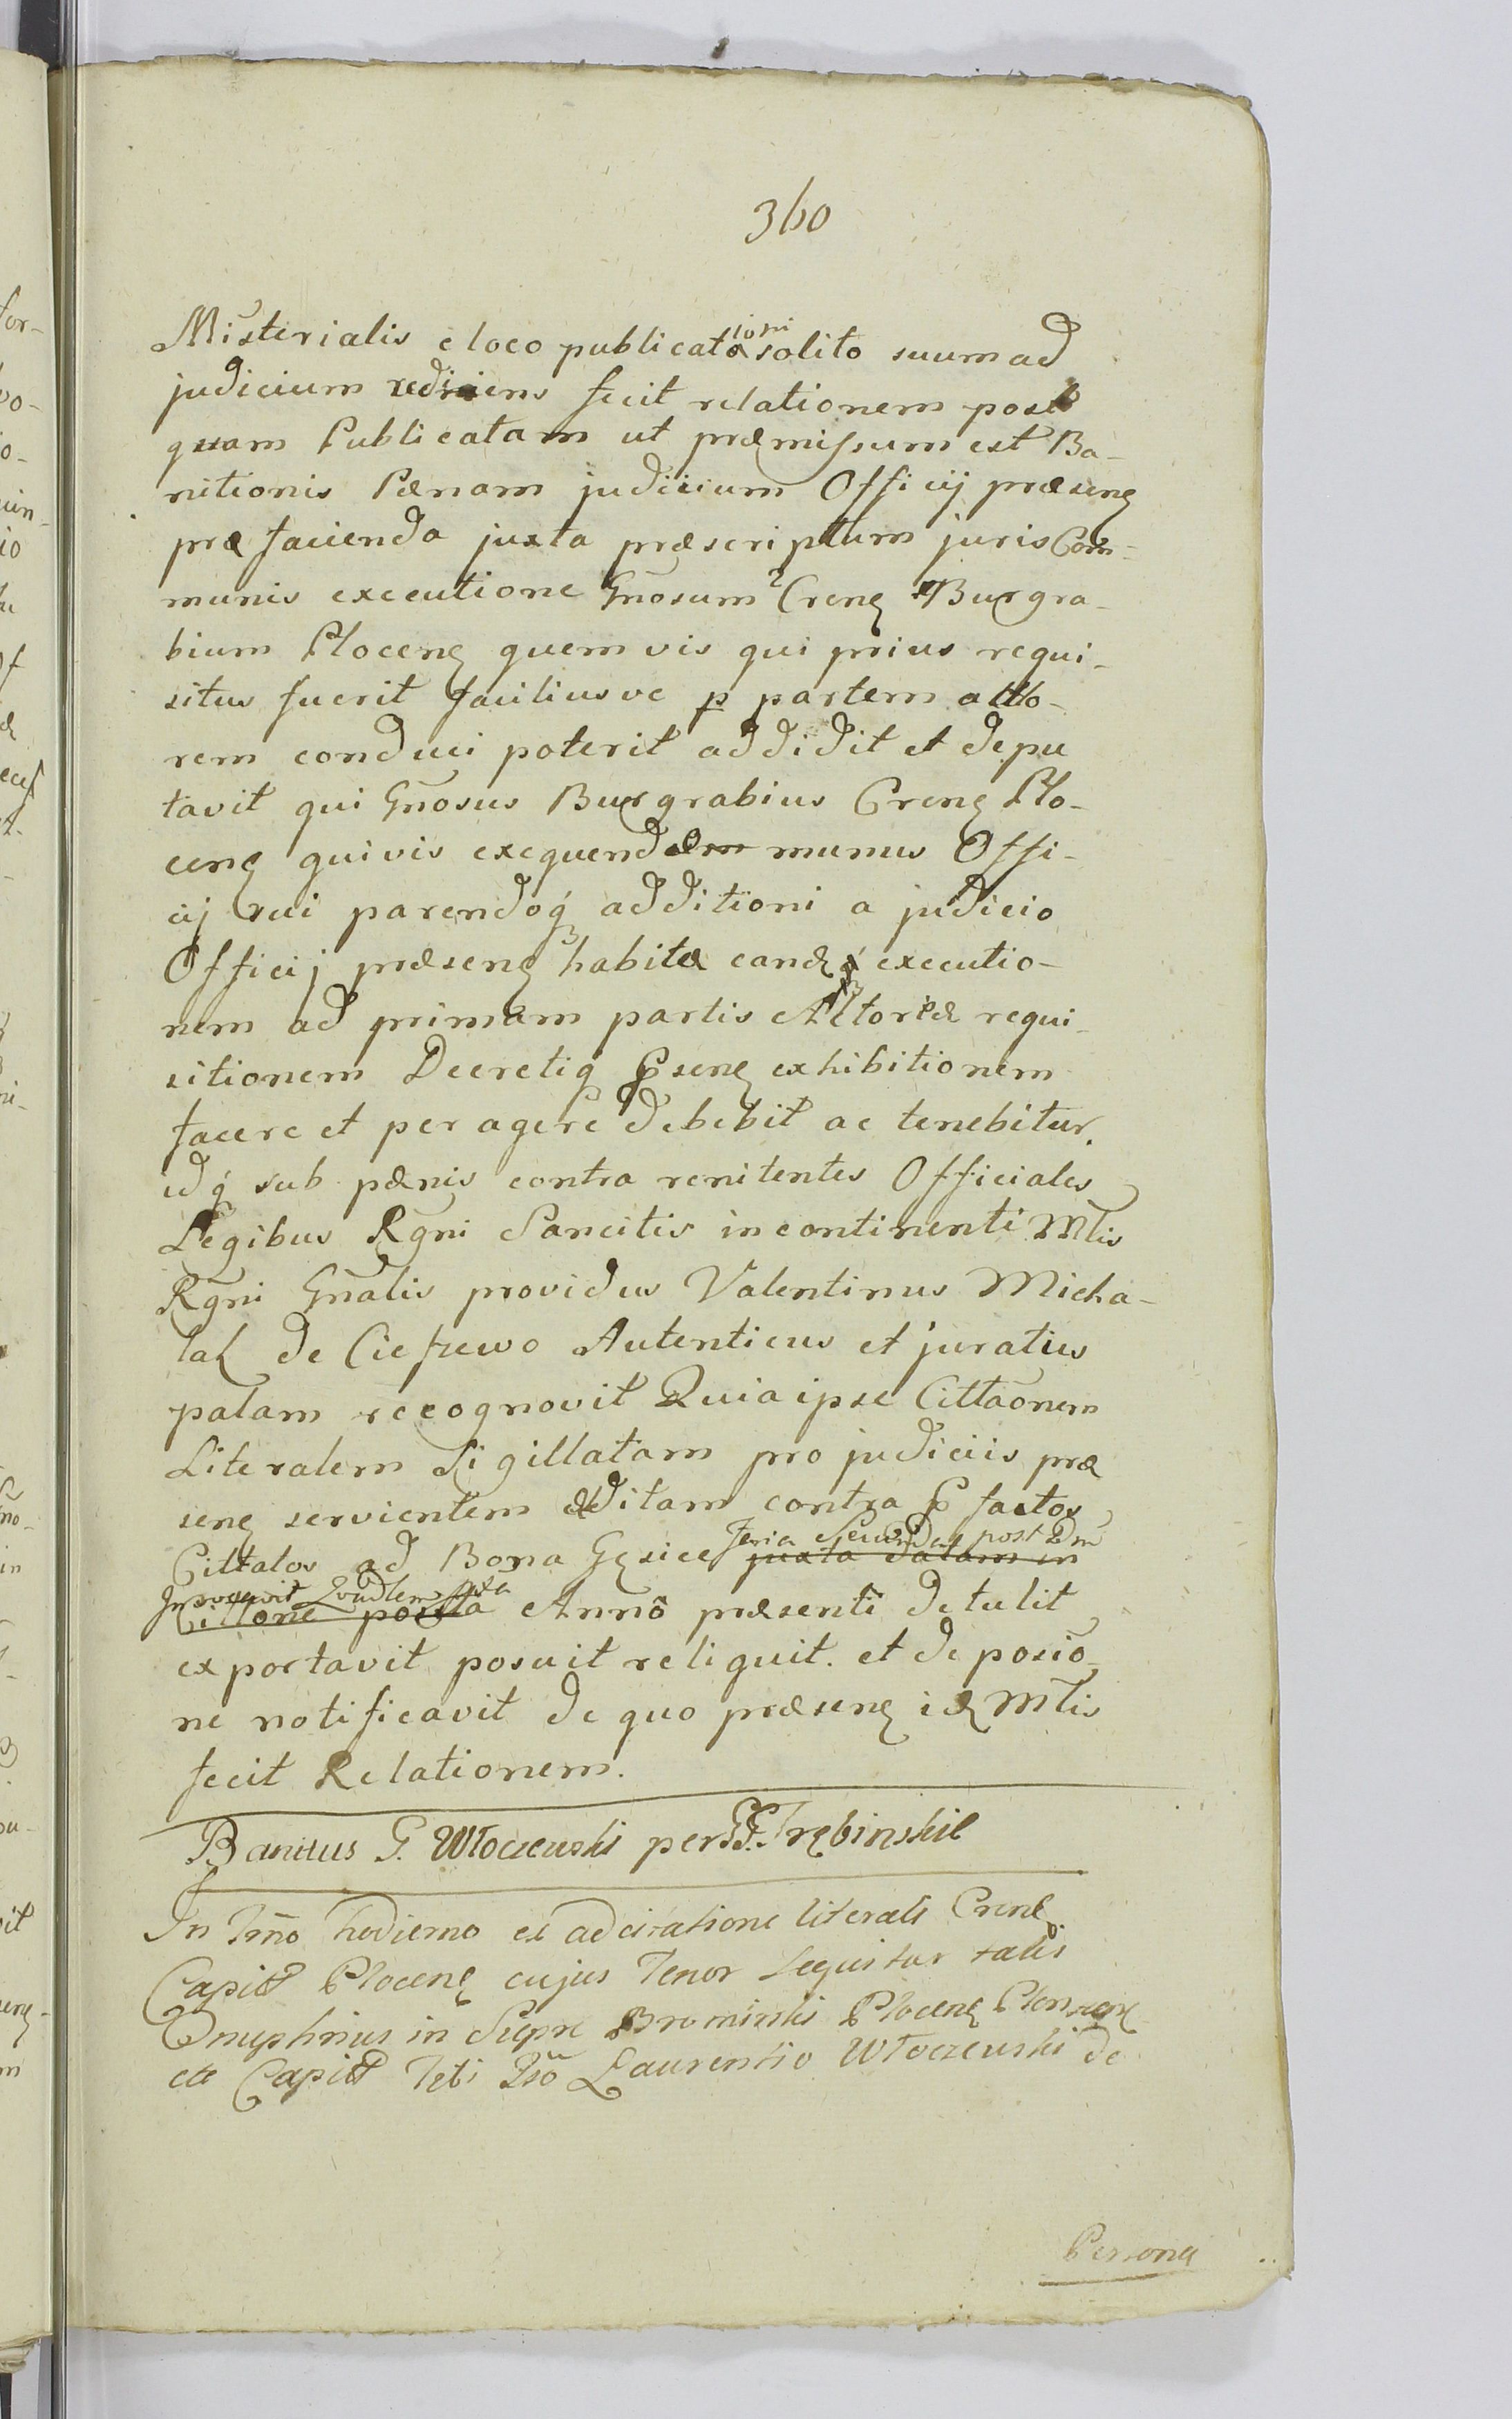 360
Misterialis e loco publicationi solito suum ad
judicium rediens fecit relationem post
quam Publicatam ut præmissum est Ba-
nitionis Pænam judicium Officij præsenę
præ facienda juxta præscriptum juris Com-
munis executione Gnosum Crenę Burgra-
bium Plocenę quemvis qui prius requi-
situs fuerit faciliusve p partem acto-
rem conduci poterit addidit et depu
tavit qui Gnosus Burgrabius Crenę Plo-
cenę quivis exequendo munus Offi-
cij sui parendoq additioni a judicio
Officij præsenę habitæ eandę executio-
nem ad primam partis Actoreæ requi-
sitionem Decretiq psenę exhibitionem
facere et peragere debebit ac tenebitur.
idq sub pænis contra renitentes Officiales
Legibus Rgni Sancitis in continenti Mtis
Rgni Gnalis providus Valentinus Micha-
lak de Ciefzewo Autenticus et juratus
palam recognovit Quia ipse Cittaonem
Literalem Sigillatam pro judiciis præ
senę servientem æditam contra p factos
Cittatos ad Bona Gęsice juxta datam in Feria Secunda post Dm
Cittone posita Invocavit Qudlem Anno præsenti detulit
exportavit posuit reliquit. et de posio-
ne notificavit de quo præsenę idę Mtis
fecit Relationem.
Banitus G. Włoczewski per GG. Trębinskie
In Tmo hodierno ex adcitatione literali Crenę
Capit Plocenę cujus Tenor sequitur talis
Onuphrius in Siepre Bromirski Plocenę Plonscenę
etc Capit Tibi Gso Laurentio Włoczewski de
Persona